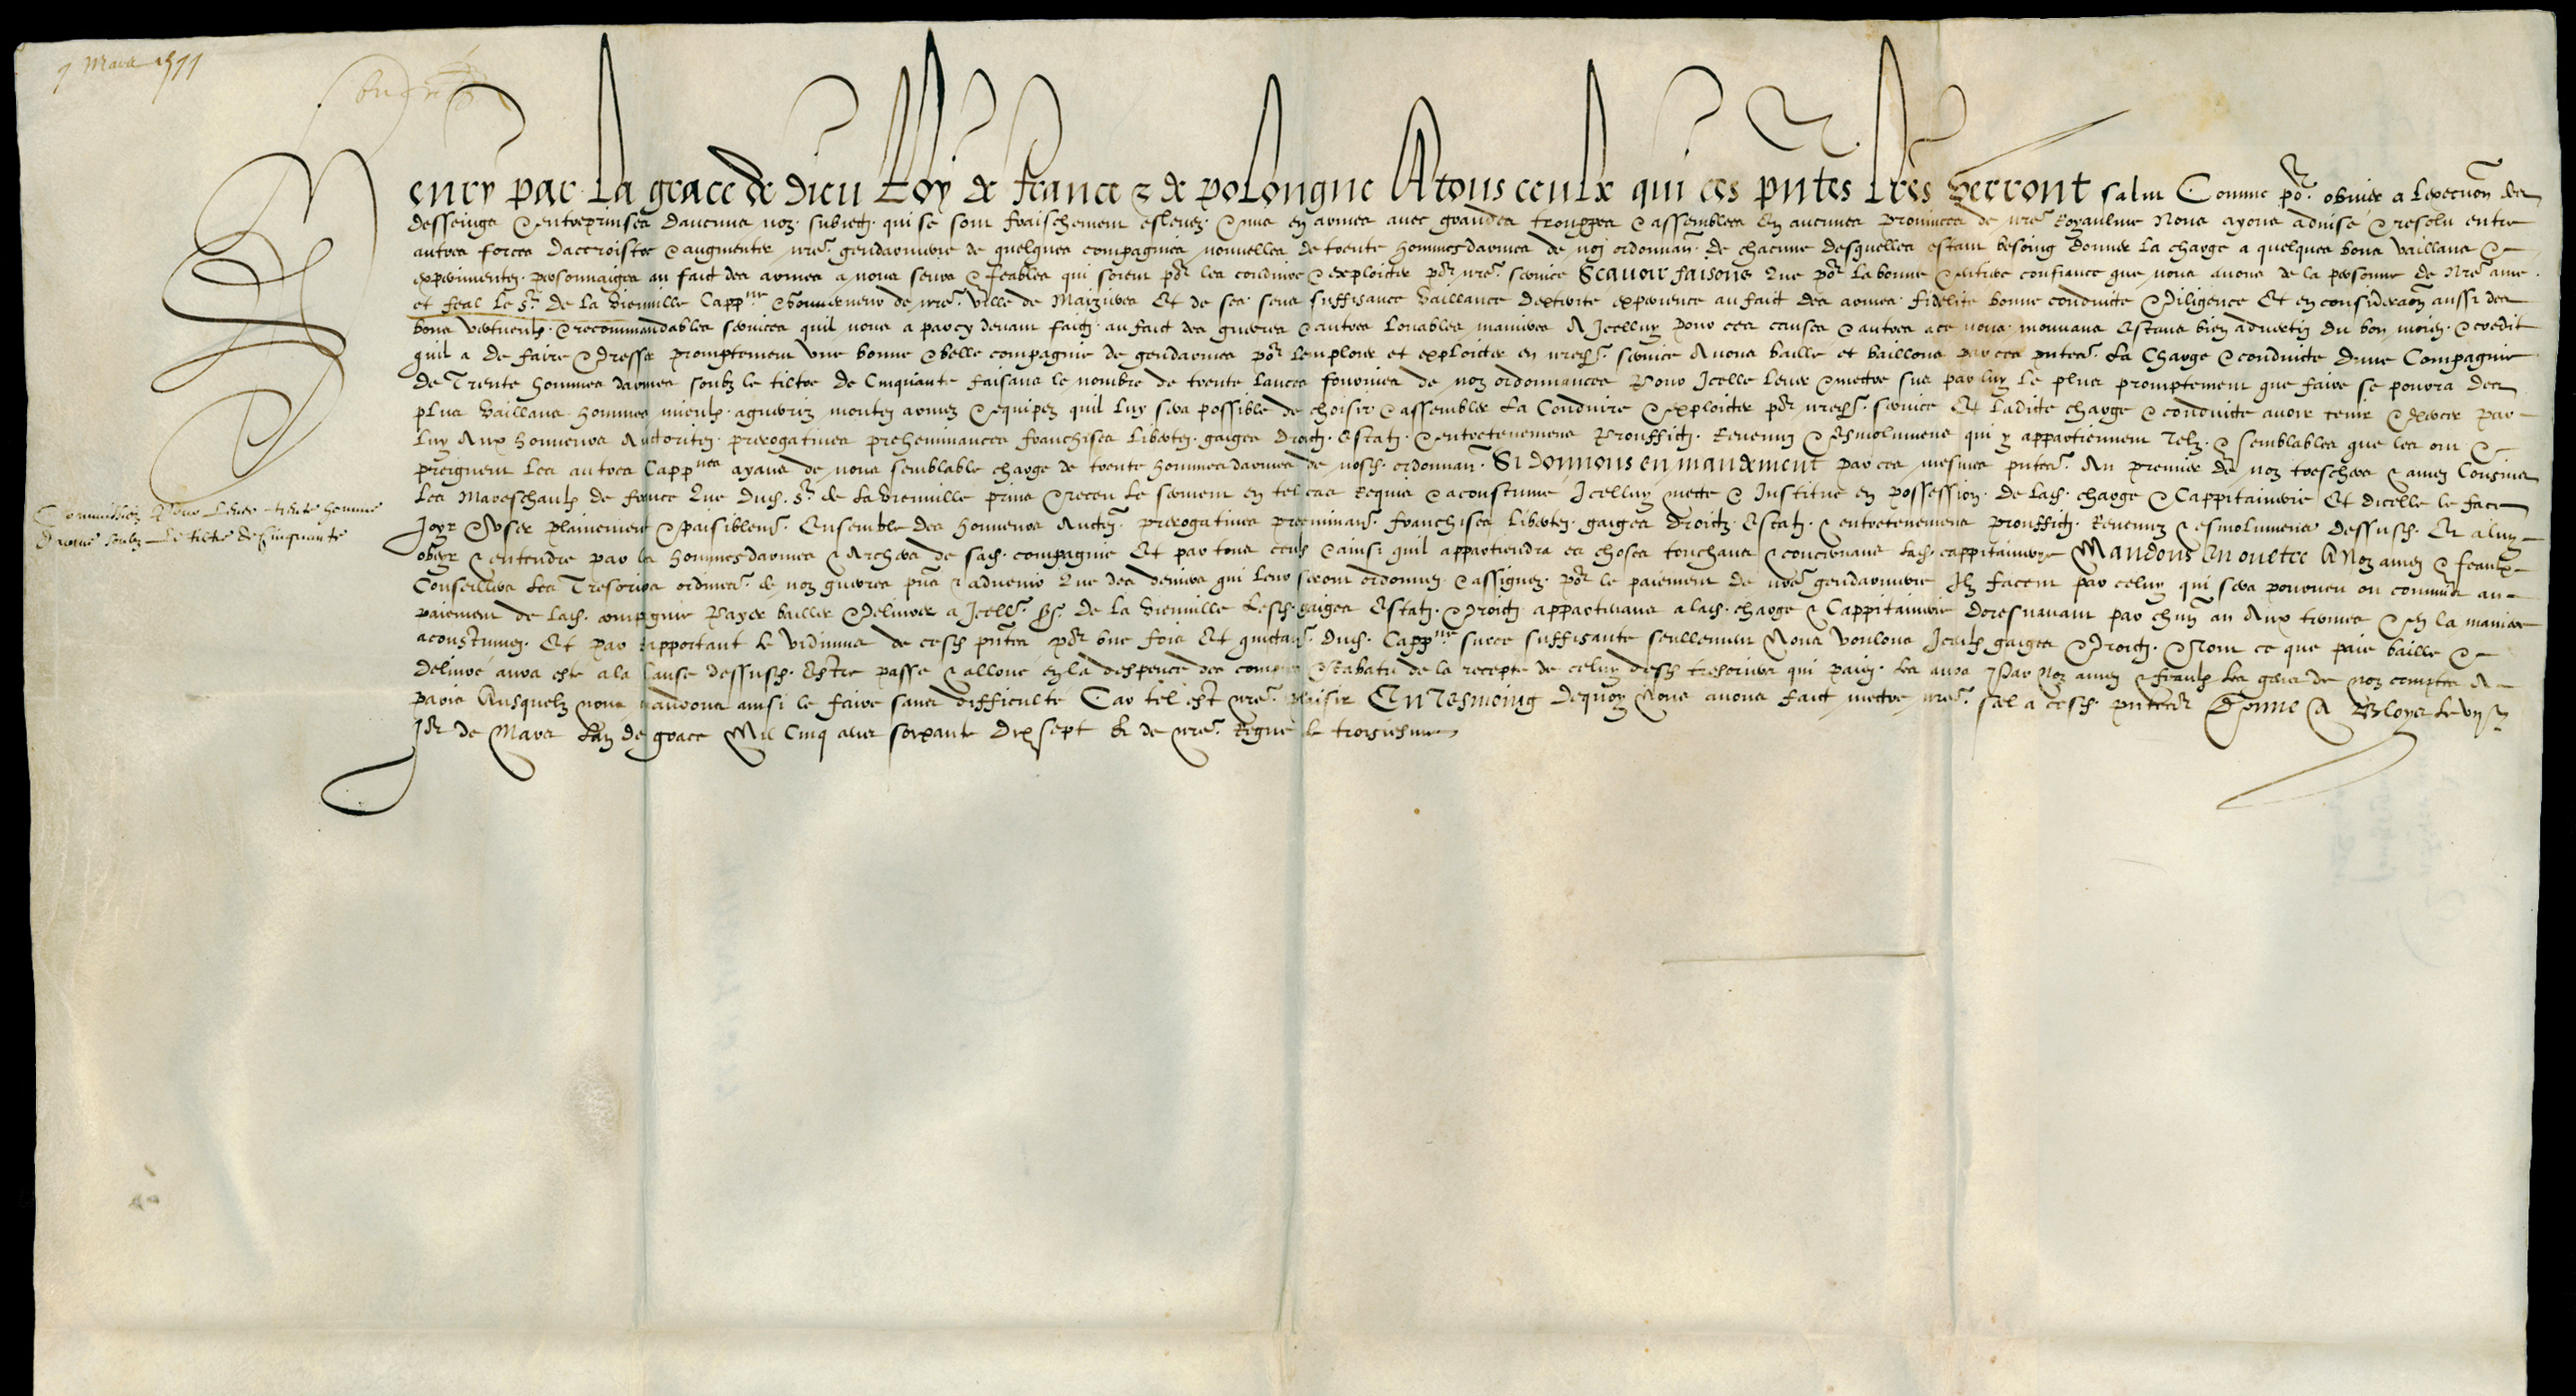 7 Mars 1577
Henry par La grace de dieu Roy de france & de poLongne A tous ceulx qui ces pntes Lres verront salut Comme por obvier a Lexecuon des
desseings & entreprinses daucuns noz subiectz qui se sont fraischement eslevez & mis en armes avec grandes trouppes & assemblees En aucunes Provinces de nre Royaulme Nous ayons advisé & resolu entre
autres forces daccroistre & augmenter nre gendarmerie de quelques compagnies nouvelles de trente hommes darmes de noz ordonnan. de chacune desquelles estant besoing donner La charge a quelques bons vaillans &
experimentez personnaiges au faict des armes a nous seurs & feables qui soient por les conduire & exploicter por nre service Scavoir faisons Que por La bonne & entiere confiance que nous avons de la personne de Nre ame
et feal Le sr de La Vieuville Cappne & Gouverneur de nre ville de Maizieres Et de ses sens suffisance vaillance dexterite experience au faict des armes fidelite bonne conduicte & Diligence Et en consideraon aussi des
bons vertueulx & recommandables services quil nous a par cy devant faictz au faict des guerres & autres Louables manieres A Icelluy pour ces causes & autres a ce nous mouvans Estans bien advertiz du bon moien & credit
quil a de faire & dresser promptement une bonne & belle compagnie de gendarmes por Lemploier et exploicter en nred. service Avons baille et baillons par ces pntes La Charge & conduicte dune Compagnie
de Trente hommes darmes soubz le tiltre de Cinquante faisans le nombre de trente lances fournies de noz ordonnances Pour Icelle Lever & mectre sus par luy Le plus promptement que faire se pourra des
plus vaillans hommes mieulx aguerriz montez armez & equipez quil luy sera possible de choisir & assembler La Conduire & exploicter por nred. service Et Ladicte charge & conduicte avoir tenir & exercer par
Luy Aux honneurs Auctoritez prerogatives preheminances franchises Libertez gaiges droictz Estatz & entretenemens Prouffictz Revenuz & Esmolumens qui y appartiennent Telz & semblables que les ont &
preignent Les autres Cappnes ayans de nous semblable charge de trente hommes darmes de nosd. ordonnan. Si donnons en mandement par ces mesmes pntes Au premier de noz treschers & amez Cousins
Les Mareschaulx de france Que dud. sr de La Vieuville prins & receu Le serment en tel cas Requis & acoustume Icelluy mette & Institue en possession de Lad. charge & Cappitainerie Et dicelle le face
Joyr & User plainement & paisiblement Ensemble des honneurs Auctez prerogatives preeminan. franchises Libertez gaiges droictz Estatz & entretenemens prouffictz Revenuz & esmolumens dessusd. Et a luy
obeyr & entendre par les hommes darmes & Archers de sad. compagnie Et par tous ceulx & ainsi quil appartiendra es choses touchans & concernans Lad. cappitainerye Mandons En oultre A Noz amez & feaulx
Conseillers Les Tresoriers ordines de noz guerres pns & advenir Que des deniers qui Leur seront ordonnez & assignez por le paiement de nre gendarmerie Ilz facent par celuy qui sera pourveu ou commis au
paiement de Lad. compagnie Payer bailler & Delivrer a Icell. sr de La Vieuville Lesd. gaiges Estatz & droictz appartenans a lad. charge & Cappitainerie doresnavant par chun an Aux termes & En la maniere
acoustumez Et par rapportant le vidimus de cesd pntes por une fois Et quictan. dud. Cappne sur ce suffisante seullement Nous voulons Iceulx gaiges & Droictz & Tout ce que paié baillé &
delivré aura este a la Cause dessusd. Estre passe & alloue En La despence des comptes & Rabatu de la recepte de celuy desd tresoriers qui paiez Les aura Par Noz amez & feaulx Les gens de noz comptes A
paris Ausquelz nous mandons ainsi le faire sans difficulté Car tel est nre plaisir En Tesmoing dequoy Nous avons faict mectre nre scel a cesd. pntes Donné A Bloys Le vije
Jor de Mars Lan de grace Mil Cinq cens soixante Dix sept Et de nre Regne le troisiesme
Commission Pour Lever trente hommes
Darmes soubz Le tiltre de Cinquante